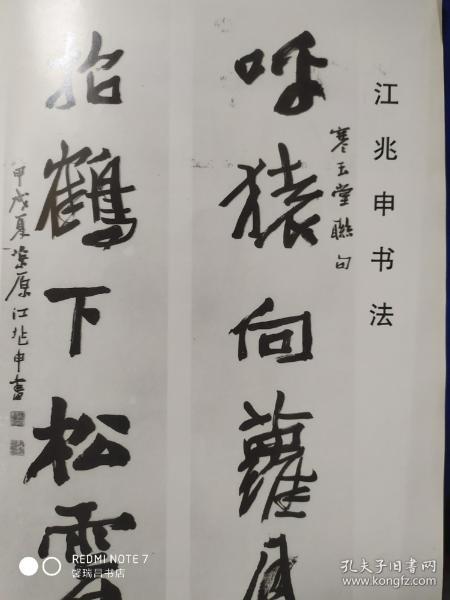 江兆申书法
寒玉堂聯句
呼猿向蘿月
招鶴下松雲
甲戌夏 江兆申書
REDMI NOTE 7
馨瑞昌书店
孔夫子旧书网
www.kongfz.com